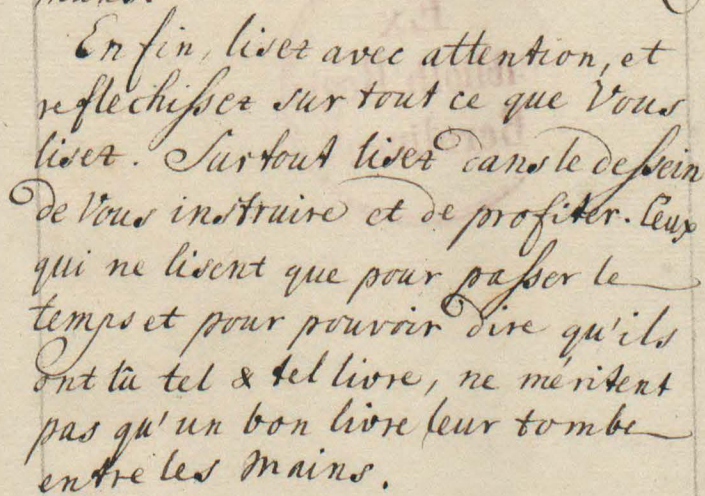 En fin, lisez avec attention, et
reflechissez sur tout ce que Vous
lisez. Surtout lisez dans le dessein
de Vous instruire et de profiter. Ceux
qui ne lisent que pour passer le
temps et pour pouvoir dire qu'ils
ont lû tel & tel livre, ne méritent
pas qu'un bon livre leur tombe
entre les mains.